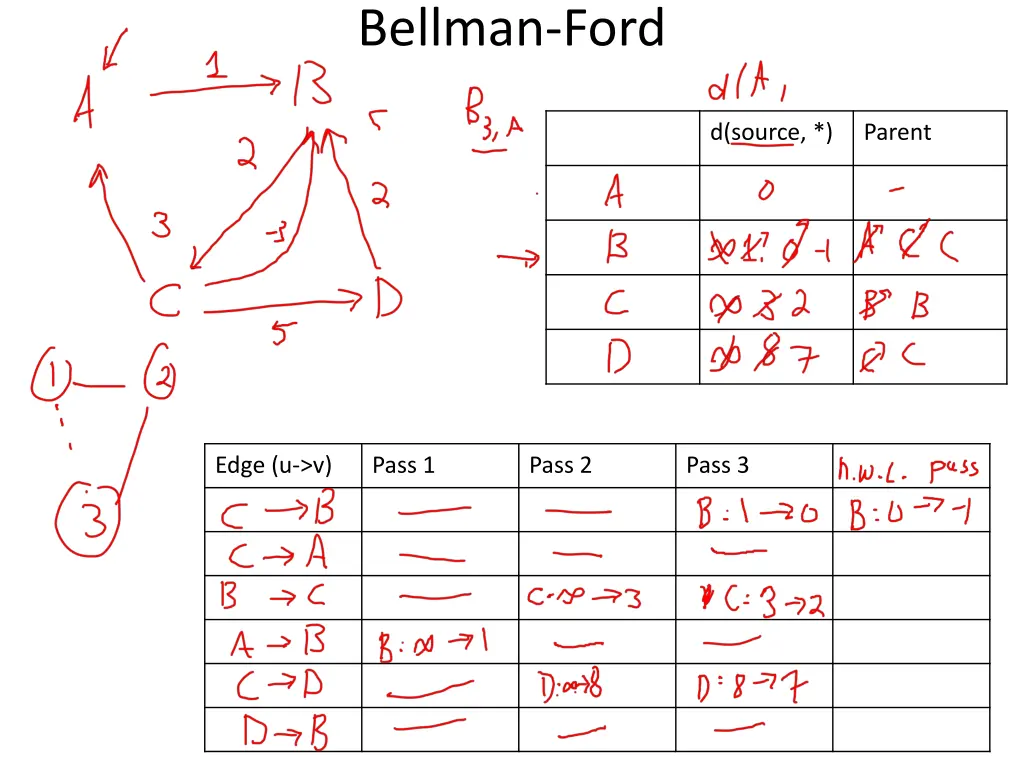 Bellman-Ford
A 1 B
2
3 -3 2
C 5 D
B3, A
d(A,
d(source, *) Parent
A 0 -
B ∞ 1 0 -1 A C C
C ∞ 3 2 B B
D ∞ 8 7 C C
1 2
3
Edge (u->v) Pass 1 Pass 2 Pass 3 n.w.c. pass
C → B — — B: 1 → 0 B: 0 → -1
C → A — — —
B → C — C: ∞ → 3 C: 3 → 2
A → B B: ∞ → 1 — —
C → D — D: ∞ → 8 D: 8 → 7
D → B — — —